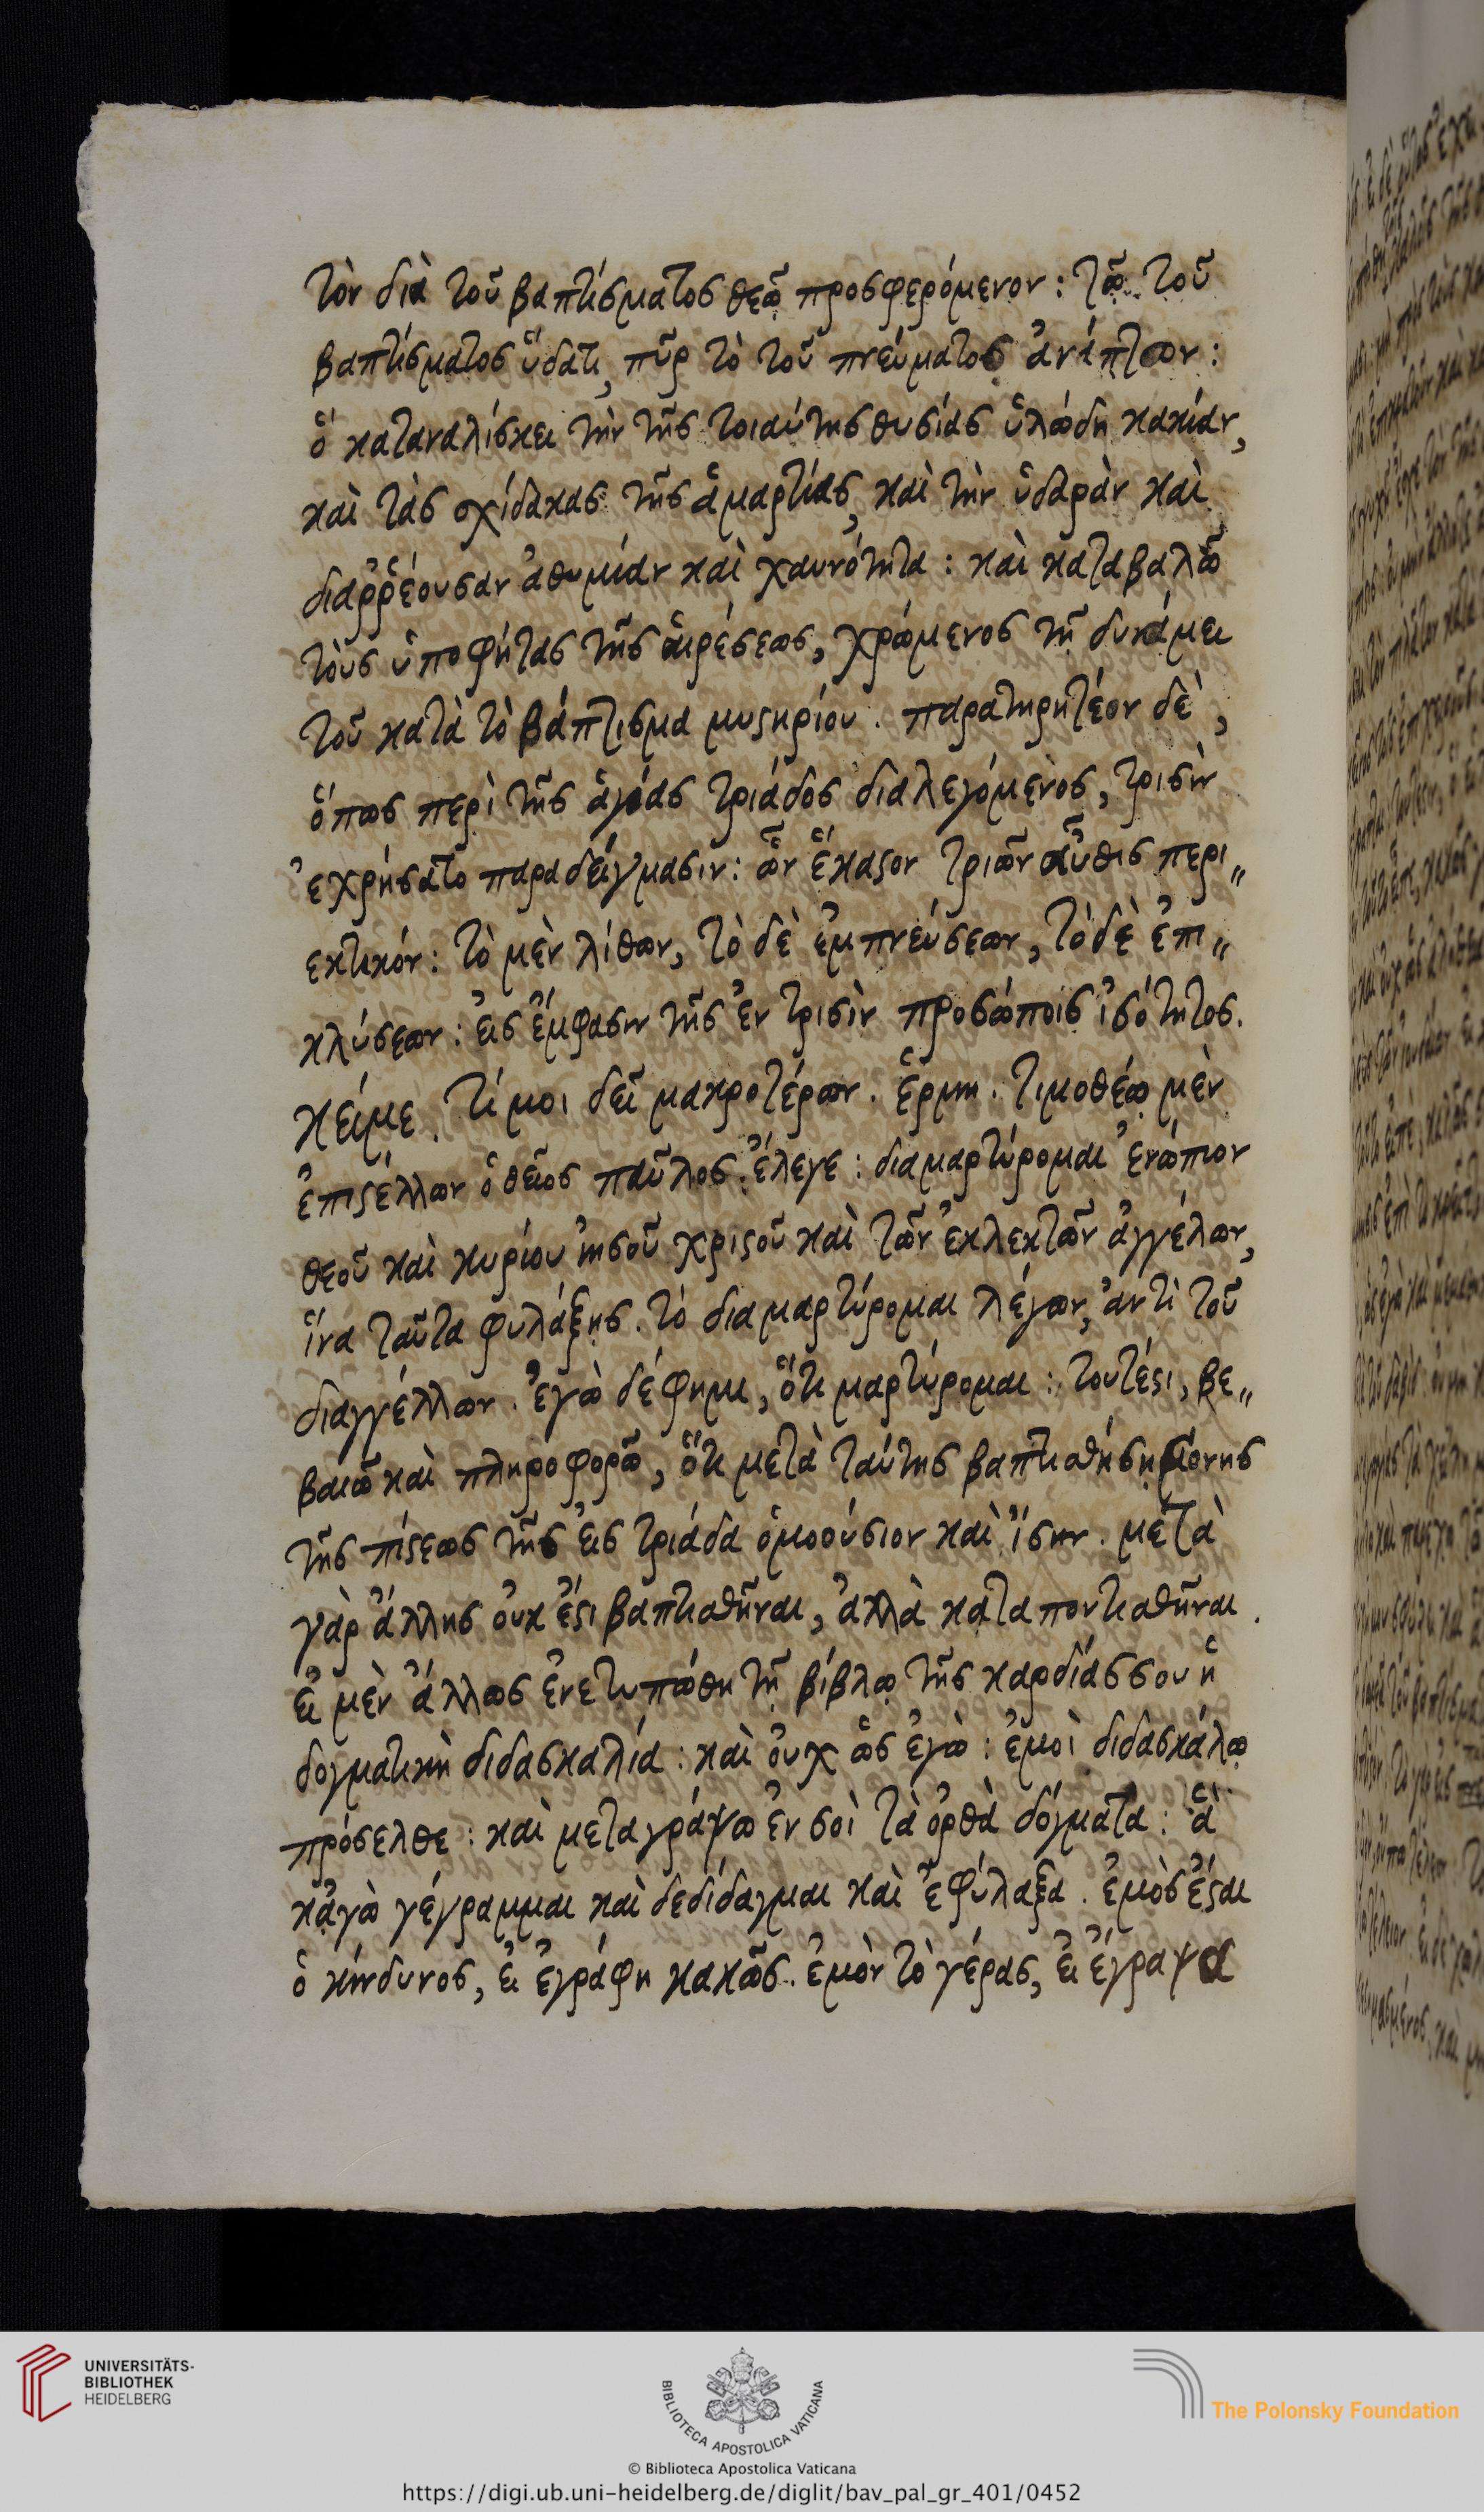 τὸν διὰ τοῦ βαπτίσματος θεῷ προσφερόμενον: τῷ τοῦ
βαπτίσματος ὕδατι, πῦρ τὸ τοῦ πνεύματος ἀνάπτων:
ὃ καταναλίσκει τὴν τῆς τοιαύτης θυσίας ὑλώδη κακίαν,
καὶ τὰς σχίδακας τῆς ἁμαρτίας, καὶ τὴν ὑδαρὰν καὶ
διαῤῥέουσαν ἀθυμίαν καὶ χαυνότητα: καὶ καταβαλῶ
τοὺς ὑποφήτας τῆς αἱρέσεως, χρώμενος τῇ δυνάμει
τοῦ κατὰ τὸ βάπτισμα μυϛηρίου. παρατηρητέον δὲ,
ὅπως περὶ τῆς ἁγίας τριάδος διαλεγόμενος, τρισὶν
ἐχρήσατο παραδείγμασιν: ὧν ἕκαϛον τριῶν αὖθις περι„
εκτικόν: τὸ μὲν λίθων, τὸ δὲ ἐμπνεύσεων, τὸ δὲ ἐπι„
κλύσεων: εἰς ἔμφασιν τῆς ἐν τρισὶν προσώποις ἰσότητος.
κείμε. τί μοι δεῖ μακροτέρων. ἑρμη. τιμοθέῳ μὲν
ἐπιϛέλλων ὁ θεῖος παῦλος. ἔλεγε: διαμαρτύρομαι ἐνώπιον
θεοῦ καὶ κυρίου ἰησοῦ χριϛοῦ καὶ τῶν ἐκλεκτῶν ἀγγέλων,
ἵνα ταῦτα φυλάξῃς. τὸ διαμαρτύρομαι λέγων, ἀντὶ τοῦ
διαγγέλλων. ἐγὼ δέ φημι, ὅτι μαρτύρομαι: τουτέϛι, βε„
βαιῶ καὶ πληροφορῶ, ὅτι μετὰ ταύτης βαπτισθήσῃ μόνης
τῆς πίϛεως τῆς εἰς τριάδα ὁμοούσιον καὶ ἴσην. μετὰ
γὰρ ἄλλης οὐκ ἔϛι βαπτισθῆναι, ἀλλὰ καταποντισθῆναι.
εἰ μὲν ἄλλως ἐνετυπώθη τῇ βίβλῳ τῆς καρδίας σου ἡ
δογματικὴ διδασκαλία: καὶ οὐχ ὡς ἐγὼ: ἐμοὶ διδασκάλῳ
πρόσελθε: καὶ μεταγράψω ἐν σοὶ τὰ ὀρθὰ δόγματα: ἃ
κἀγὼ γέγραμμαι καὶ δεδίδαγμαι καὶ ἐφύλαξα. ἐμὸς ἔϛαι
ὁ κίνδυνος, εἰ ἐγράφη κακῶς. ἐμὸν τὸ γέρας, εἰ ἔγραψα
UNIVERSITÄTS-
BIBLIOTHEK
HEIDELBERG
BIBLIOTECA APOSTOLICA VATICANA
The Polonsky Foundation
© Biblioteca Apostolica Vaticana
https://digi.ub.uni-heidelberg.de/diglit/bav_pal_gr_401/0452